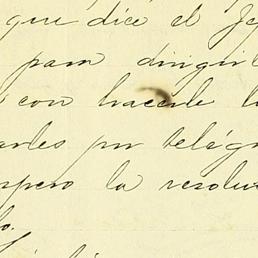 que dice el Je
para dirigir
con hacerle l
arles por telégr
spero la resolu
lo.